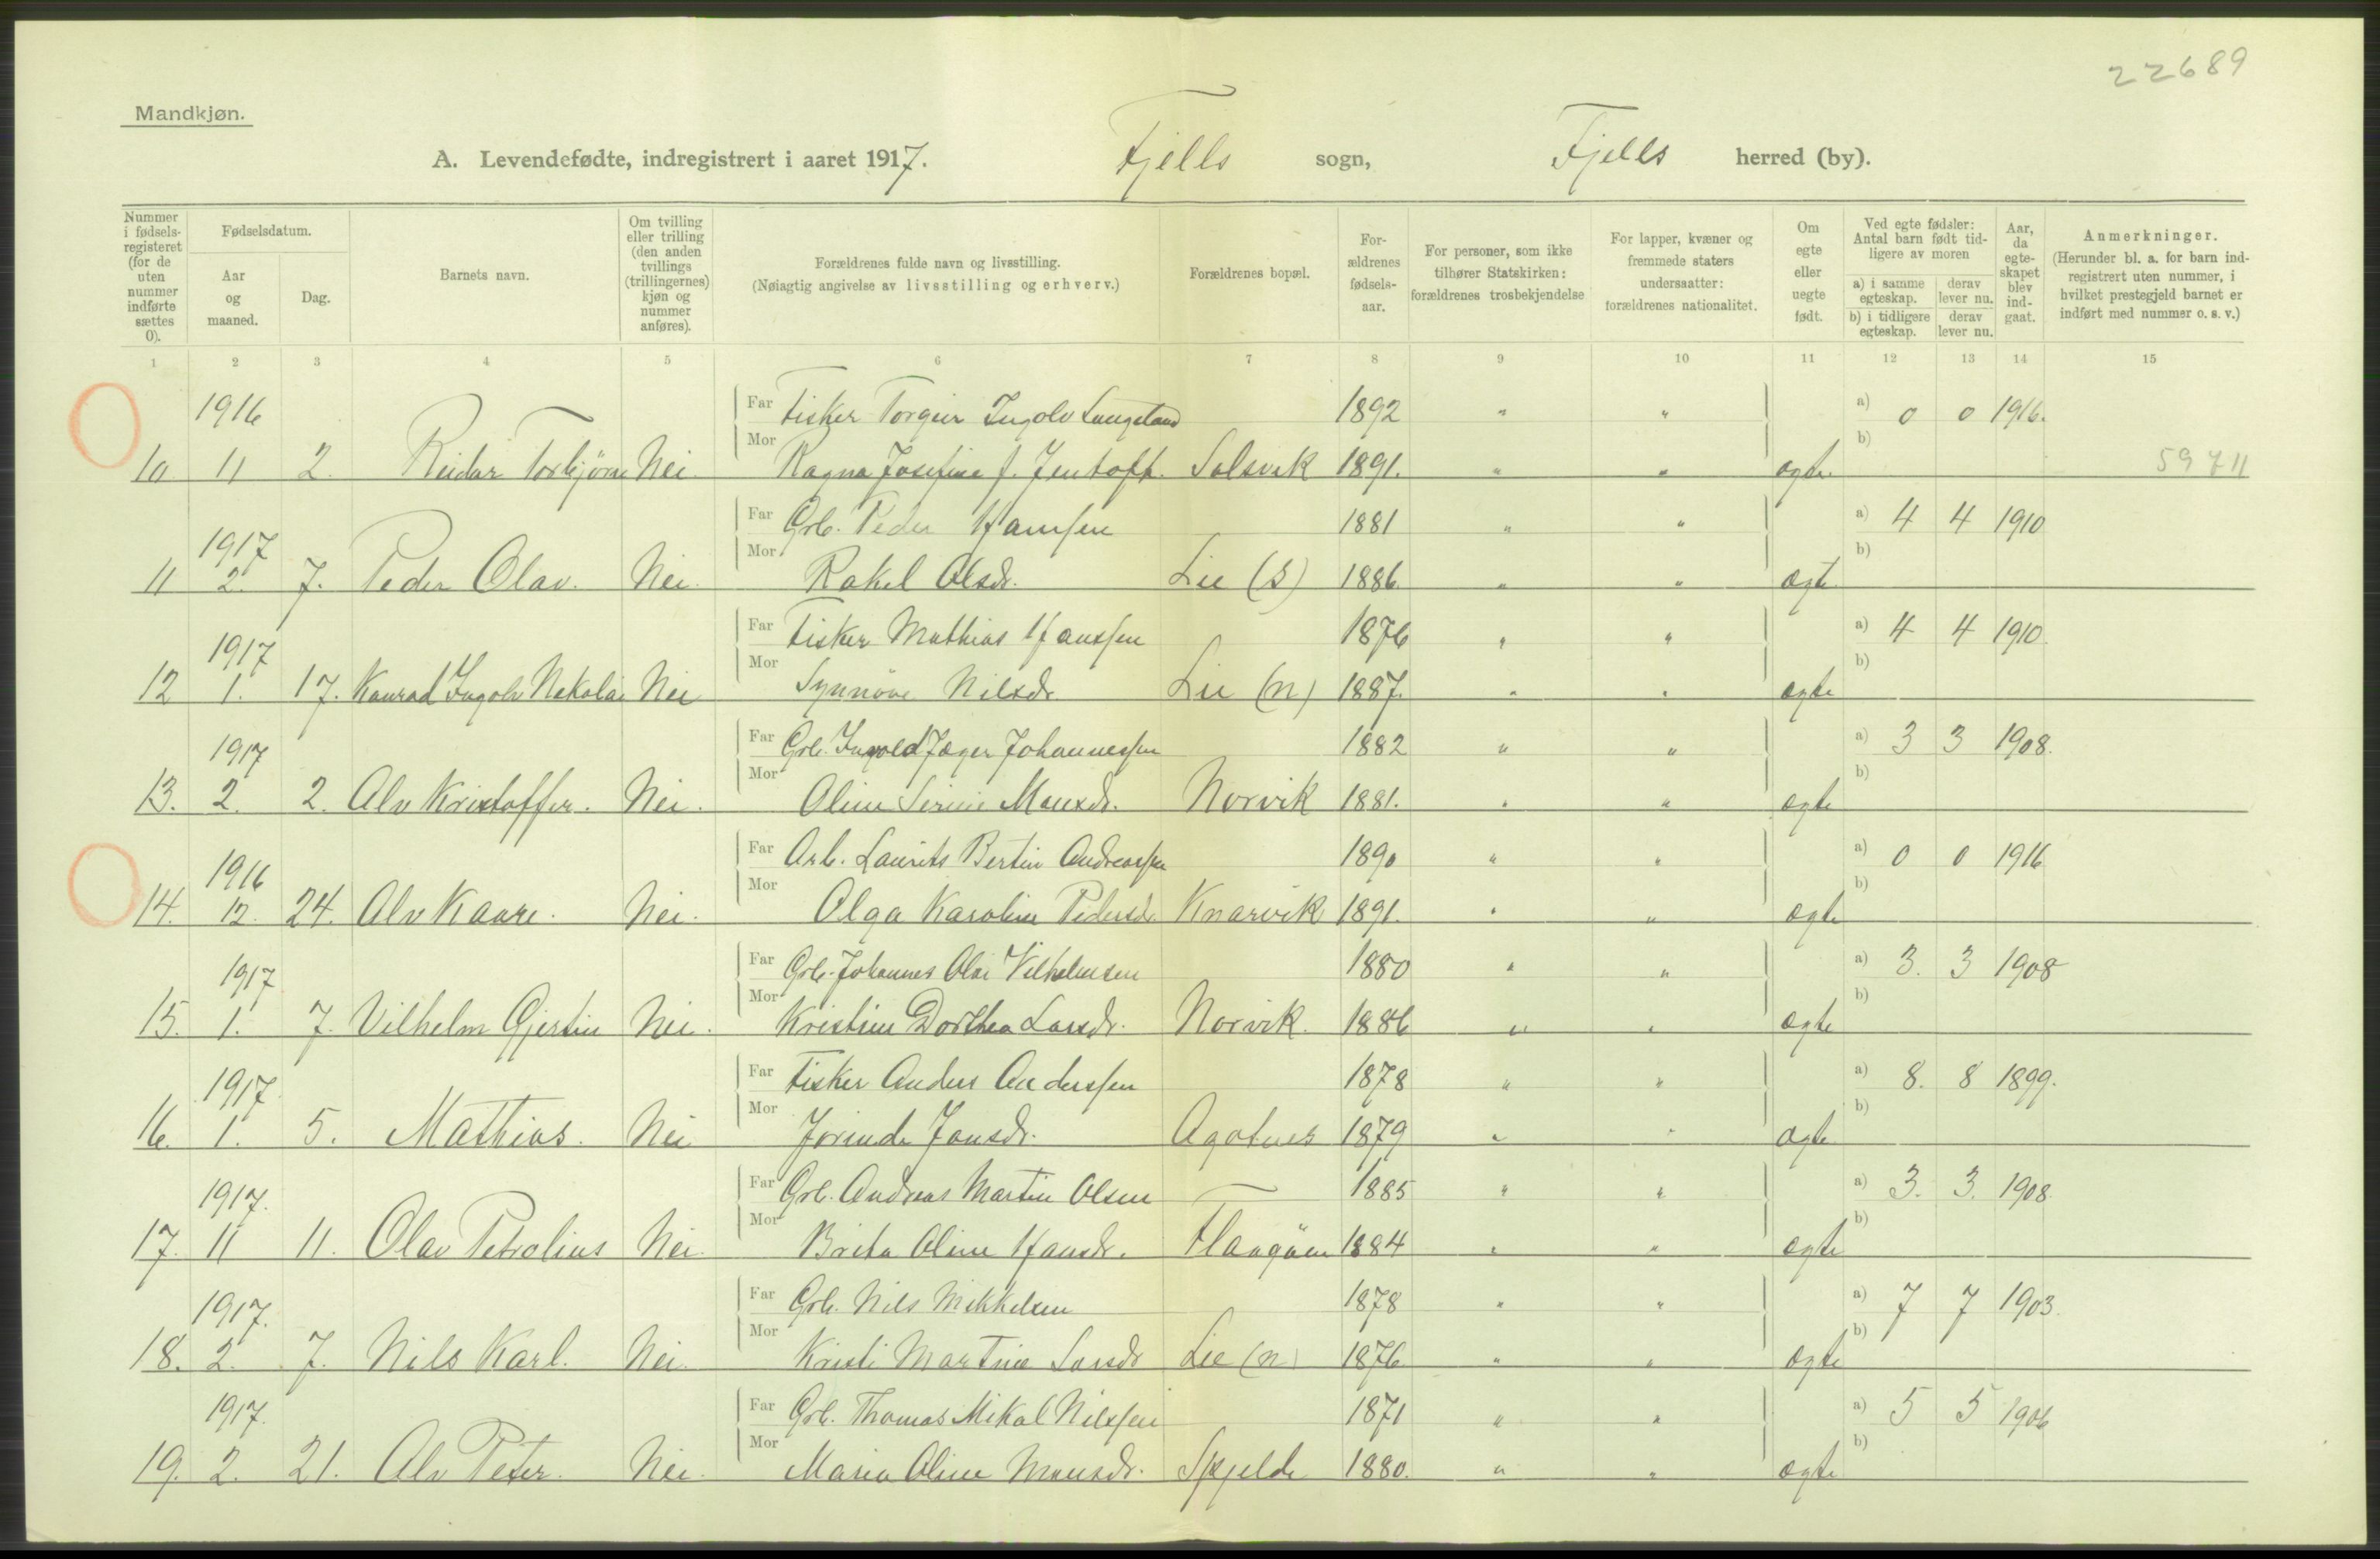 22689
Mandkjøn.
A. Levendefødte, indregistrert i aaret 1917. Fjells sogn, Fjells herred (by).
Nummer i fødsels-registeret (for de uten nummer indførte sættes 0).
Fødselsdatum.
Aar og maaned.
Dag.
Barnets navn.
Om tvilling eller trilling (den anden tvillings (trillingernes) kjøn og nummer anføres).
Forældrenes fulde navn og livsstilling.
(Nøiagtig angivelse av livsstilling og erhverv.)
Forældrenes bopæl.
For-ældrenes fødsels-aar.
For personer, som ikke tilhører Statskirken: forældrenes trosbekjendelse
For lapper, kvæner og fremmede staters undersaatter: forældrenes nationalitet.
Om egte eller uegte født.
Ved egte fødsler: Antal barn født tid-ligere av moren
a) i samme egteskap. derav lever nu.
b) i tidligere egteskap. derav lever nu.
Aar, da egte-skapet blev ind-gaat.
Anmerkninger.
(Herunder bl. a. for barn ind-registrert uten nummer, i hvilket prestegjeld barnet er indført med nummer o. s. v.)
1 2 3 4 5 6 7 8 9 10 11 12 13 14 15
1916 Far Fisker Torgeir Ingolv Langeland 1892 " " a) 0 0 1916.
10 11 2. Reidar Torbjørn Nei. Mor Ragna Josefine f. Jentoft. Solsvik 1891. " " egte. b) 59711
1917 Far Grb. Peder Hansen 1881 " " a) 4 4 1910
11 2. 7. Peder Olav. Nei. Mor Rakel Olsdr. Lie (s) 1886 " " egte b)
1917 Far Fisker Mathias Hanssen 1876 " " a) 4 4 1910.
12 1. 17. Konrad Ingolv Nekolai Nei Mor Synnöve Nilsdr. Lie (n) 1887. " " egte b)
1917 Far Grb. Ingvold Jæger Johannessen 1882 " " a) 3 3 1908.
13. 2. 2. Alv Kristoffer. Nei. Mor Oline Serine Monsdr. Norvik 1881. " " egte b)
1916 Far Arb. Laurits Bertin Andreassen 1890 " " a) 0 0 1916
14. 12. 24. Alv Kaare. Nei. Mor Olga Karoline Pedersdr. Knarvik 1891. " " egte b)
1917 Far Grb. Johannes Olai Vilhelmsen 1880 " " a) 3. 3 1908
15. 1. 7. Vilhelm Gjertin Nei. Mor Kristine Dorthea Larsdr. Norvik. 1886 " " egte b)
1917 Far Fisker Anders Anderssen 1878 " " a) 8. 8 1899.
16. 1. 5. Mathias. Nei Mor Jorinde Jonsdr. Agotnes 1879 " " egte b)
1917. Far Grb. Andreas Martin Olsen 1885 " " a) 3. 3. 1908
17. 11 11. Olav Petrolius Nei. Mor Brita Oline Hansdr. 1884 " " egte b)
1917. Far Grb. Nils Mikkelsen 1878 " " a) 7 7 1903.
18. 2. 7. Nils Karl. Nei. Mor Kristi Martine Larsdr Lie (n) 1876 " " egte b)
1917. Far Grb. Thomas Mikal Nilssen 1871 " " a) 5 5 1906
19. 2. 21. Alv Peter. Nei. Mor Maria Oline Monsdr. Spjelde 1880. " " egte b)